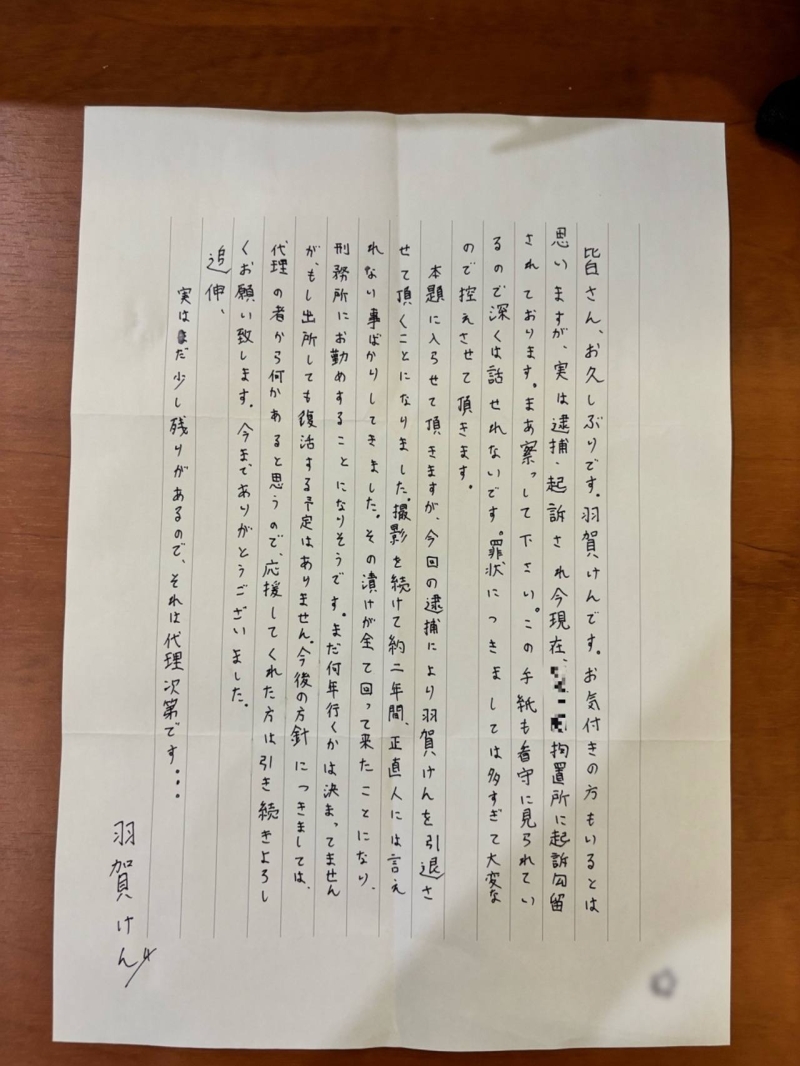 皆さん、お久しぶりです。羽賀けんです。お気付きの方もいるとは
思いますが、実は逮捕・起訴され今現在、拘置所に起訴勾留
されております。まあ察っして下さい。この手紙も看守に見られてい
るので深くは話せれないです。罪状につきましては多すぎて大変な
ので控えさせて頂きます。
本題に入らせて頂きますが、今回の逮捕により羽賀けんを引退さ
せて頂くことになりました。撮影を続けて約二年間、正直人には言え
れない事ばかりしてきました。その漬けが全て回って来たことになり、
刑務所にお勤めすることになりそうです。まだ何年行くかは決まってません
が、もし出所しても復活する予定はありません。今後の方針につきましては、
代理の者から何かあると思うので、応援してくれた方は引き続きよろし
くお願い致します。今までありがとうございました。
追伸、
実はまだ少し残りがあるので、それは代理次第です...
羽賀けん